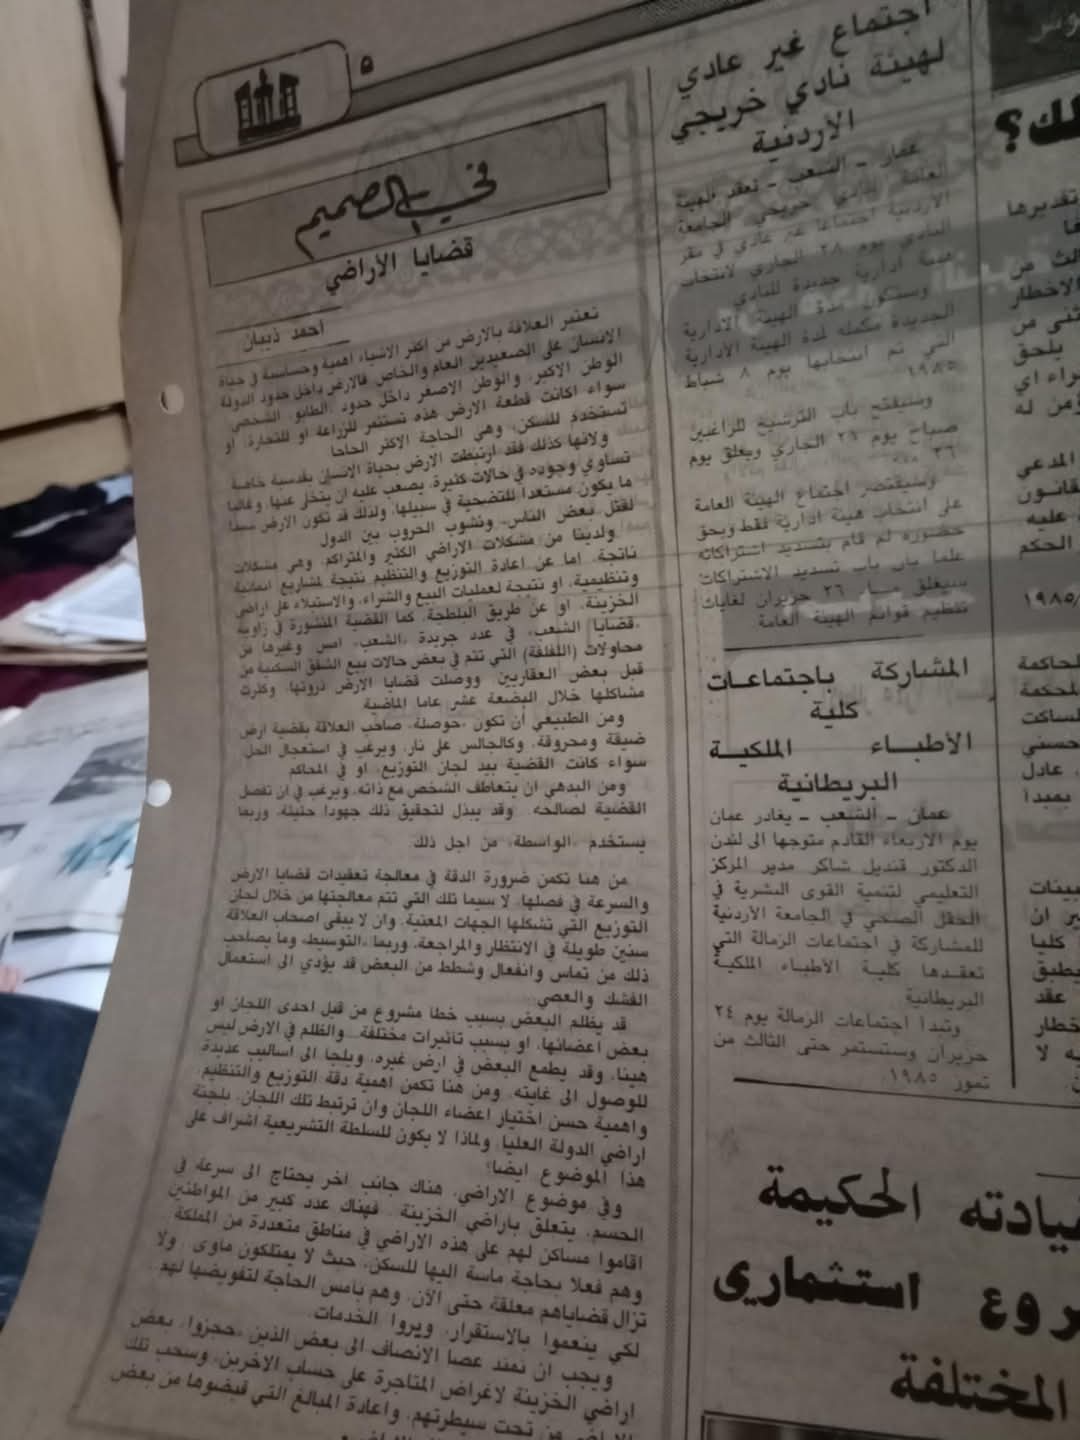 ٥
في الصميم
قضايا الأراضي
احمد ذيبان
تعتبر العلاقة بالارض من اكثر الاشياء اهمية وحساسية في حياة
الانسان على الصعيدين العام والخاص فالارض داخل حدود الدولة
الوطن الاكبر، والوطن الاصغر داخل حدود الطابو الشخصي
سواء اكانت قطعة الارض هذه تستثمر للزراعة او للتجارة، او
تستخدم للسكن، وهي الحاجة الاكثر الحاحا
ولانها كذلك فقد ارتبطت الارض بحياة الانسان بقدسية خاصة
تساوي وجوده في حالات كثيرة، يصعب عليه ان يتخلى عنها وغالبا
ما يكون مستعدا للتضحية في سبيلها، ولذلك قد تكون الارض سببا
لقتل بعض الناس، ونشوب الحروب بين الدول
ولدينا من مشكلات الاراضي الكثير والمتراكم، وهي مشكلات
ناتجة، اما عن اعادة التوزيع والتنظيم نتيجة لمشاريع انمائية
وتنظيمية، او نتيجة لعمليات البيع والشراء، والاستيلاء على اراضي
الخزينة، او عن طريق البلطجة، كما القضية المنشورة في زاوية
«قضايا الشعب» في عدد جريدة «الشعب» امس وغيرها من
محاولات (اللفلفة) التي تتم في بعض حالات بيع الشقق السكنية من
قبل بعض العقاريين ووصلت قضايا الارض ذروتها، وكثرت
مشاكلها خلال البضعة عشر عاما الماضية
ومن الطبيعي أن تكون «حوصلة» صاحب العلاقة بقضية ارض
ضيقة ومحروقة، وكالجالس على نار، ويرغب في استعجال الحل
سواء كانت القضية بيد لجان التوزيع، او في المحاكم
ومن البدهي ان يتعاطف الشخص مع ذاته، ويرغب في ان تفصل
القضية لصالحه. وقد يبذل لتحقيق ذلك جهودا حثيثة، وربما
يستخدم «الواسطة» من اجل ذلك
من هنا تكمن ضرورة الدقة في معالجة تعقيدات قضايا الارض
والسرعة في فصلها، لا سيما تلك التي تتم معالجتها من خلال لجان
التوزيع التي تشكلها الجهات المعنية، وان لا يبقى اصحاب العلاقة
سنين طويلة في الانتظار والمراجعة، وربما «التوسيط» وما يصاحب
ذلك من تماس وانفعال وشطط من البعض قد يؤدي الى استعمال
الفشك والعصي
قد يظلم البعض بسبب خطا مشروع من قبل احدى اللجان او
بعض اعضائها، او بسبب تاثيرات مختلفة.. والظلم في الارض ليس
هينا، وقد يطمع البعض في ارض غيره، ويلجا الى اساليب عديدة
للوصول الى غايته، ومن هنا تكمن اهمية دقة التوزيع والتنظيم،
واهمية حسن اختيار اعضاء اللجان وان ترتبط تلك اللجان، بلجنة
اراضي الدولة العليا، ولماذا لا يكون للسلطة التشريعية اشراف على
هذا الموضوع ايضا؟
وفي موضوع الاراضي، هناك جانب اخر يحتاج الى سرعة في
الحسم، يتعلق باراضي الخزينة. فهناك عدد كبير من المواطنين
اقاموا مساكن لهم على هذه الاراضي في مناطق متعددة من المملكة
وهم فعلا بحاجة ماسة اليها للسكن، حيث لا يمتلكون ماوى. ولا
تزال قضاياهم معلقة حتى الآن، وهم بامس الحاجة لتفويضها لهم
لكي ينعموا بالاستقرار، ويروا الخدمات.
ويجب ان تمتد عصا الانصاف الى بعض الذين «حجزوا» بعض
اراضي الخزينة لاغراض المتاجرة على حساب الاخرين، وسحب تلك
الاراضي من تحت سيطرتهم، واعادة المبالغ التي قبضوها من بعض
اجتماع غير عادي
لهيئة نادي خريجي
الاردنية
عمان ـ الشعب ـ تعقد الهيئة
العامة لنادي خريجي الجامعة
الاردنية اجتماعا غير عادي في مقر
النادي يوم ٢٨ الجاري لانتخاب
هيئة ادارية جديدة للنادي
وستكون مدة الهيئة الادارية
الجديدة مكملة لمدة الهيئة الادارية
التي تم انتخابها يوم ٨ شباط
١٩٨٥
وسيفتح باب الترشيح للراغبين
صباح يوم ٢٦ الجاري ويغلق يوم
وسيقتصر اجتماع الهيئة العامة
على انتخاب هيئة ادارية فقط ويحق
حضوره لم قام بتسديد اشتراكاته
علما بان باب تسديد الاشتراكات
سيغلق مساء ٢٦ حزيران لغايات
تنظيم قوائم الهيئة العامة
المشاركة باجتماعات
كلية
الأطباء الملكية
البريطانية
عمان ـ الشعب ـ يغادر عمان
يوم الاربعاء القادم متوجها الى لندن
الدكتور قنديل شاكر مدير المركز
التعليمي لتنمية القوى البشرية في
الحقل الصحي في الجامعة الأردنية
للمشاركة في اجتماعات الزمالة التي
تعقدها كلية الأطباء الملكية
البريطانية
وتبدا اجتماعات الزمالة يوم ٢٤
حزيران وستستمر حتى الثالث من
تموز ١٩٨٥.
لك؟
تقديرها
الث من
الاخطار
ثنى من
يلحق
راء اي
ؤمن له
المدعي
لقانون
عليه
الحكم
١٩٨٥/
لحاكمة
لمحكمة
لساكت
حسني
عادل
بمبدا
بينات
ير ان
كليا
يطبق
عقد
خطار
يه لا
يادته الحكيمة
روع استثماري
المختلفة